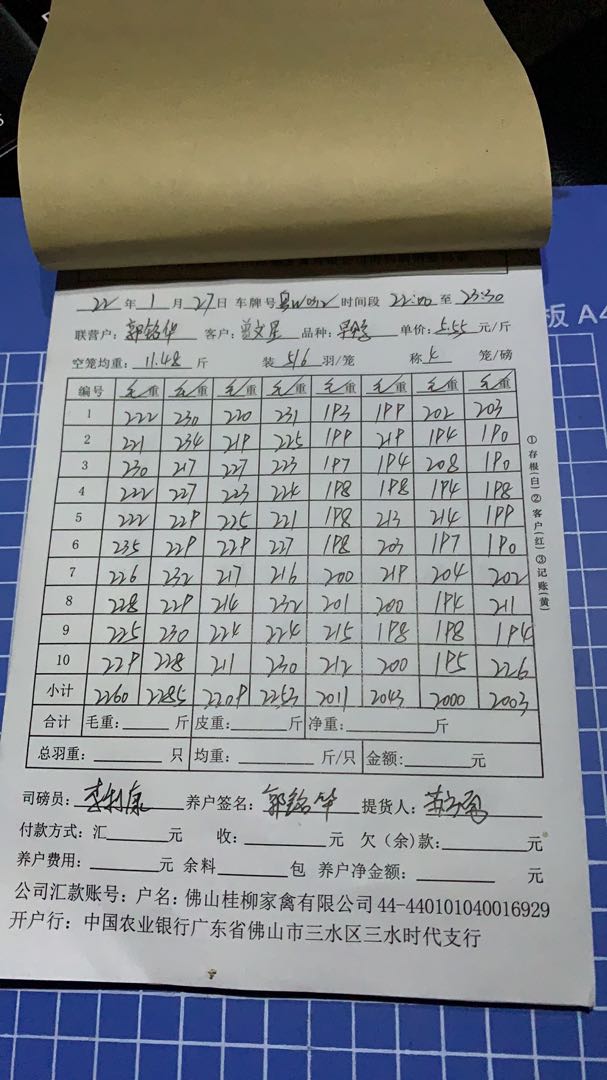 22 年 1 月 27 日 车牌号 时间段 22:00 至 23:30
联营户: 郭铭华 客户: 曾文星 品种: 单价: 5.55 元/斤
空笼均重: 11.48 斤 装 5/6 羽/笼 称 4 笼/磅
编号 毛重 毛重 毛重 毛重 毛重 毛重 毛重 毛重
1 222 230 220 231 193 199 202 203
2 221 234 219 225 199 219 194 190
3 230 217 227 223 197 194 208 190
4 222 227 223 224 198 198 194 198
5 222 229 225 221 198 213 214 199
6 235 229 229 227 198 203 197 190
7 226 232 217 216 200 219 204 202
8 228 229 214 232 201 200 194 211
9 225 230 224 224 215 198 198 194
10 229 228 211 230 212 200 195 226
小计 2260 2285 2209 2253 2011 2043 2000 2003
合计 毛重: 斤 皮重: 斤 净重: 斤
总羽重: 只 均重: 斤/只 金额: 元
司磅员: 李利康 养户签名: 郭铭华 提货人:
付款方式: 汇 元 收: 元 欠(余)款: 元
养户费用: 元 余料 包 养户净金额: 元
公司汇款账号: 户名: 佛山桂柳家禽有限公司 44-440101040016929
开户行: 中国农业银行广东省佛山市三水区三水时代支行
①存根(白)②客户(红)③记账(黄)
板 A4